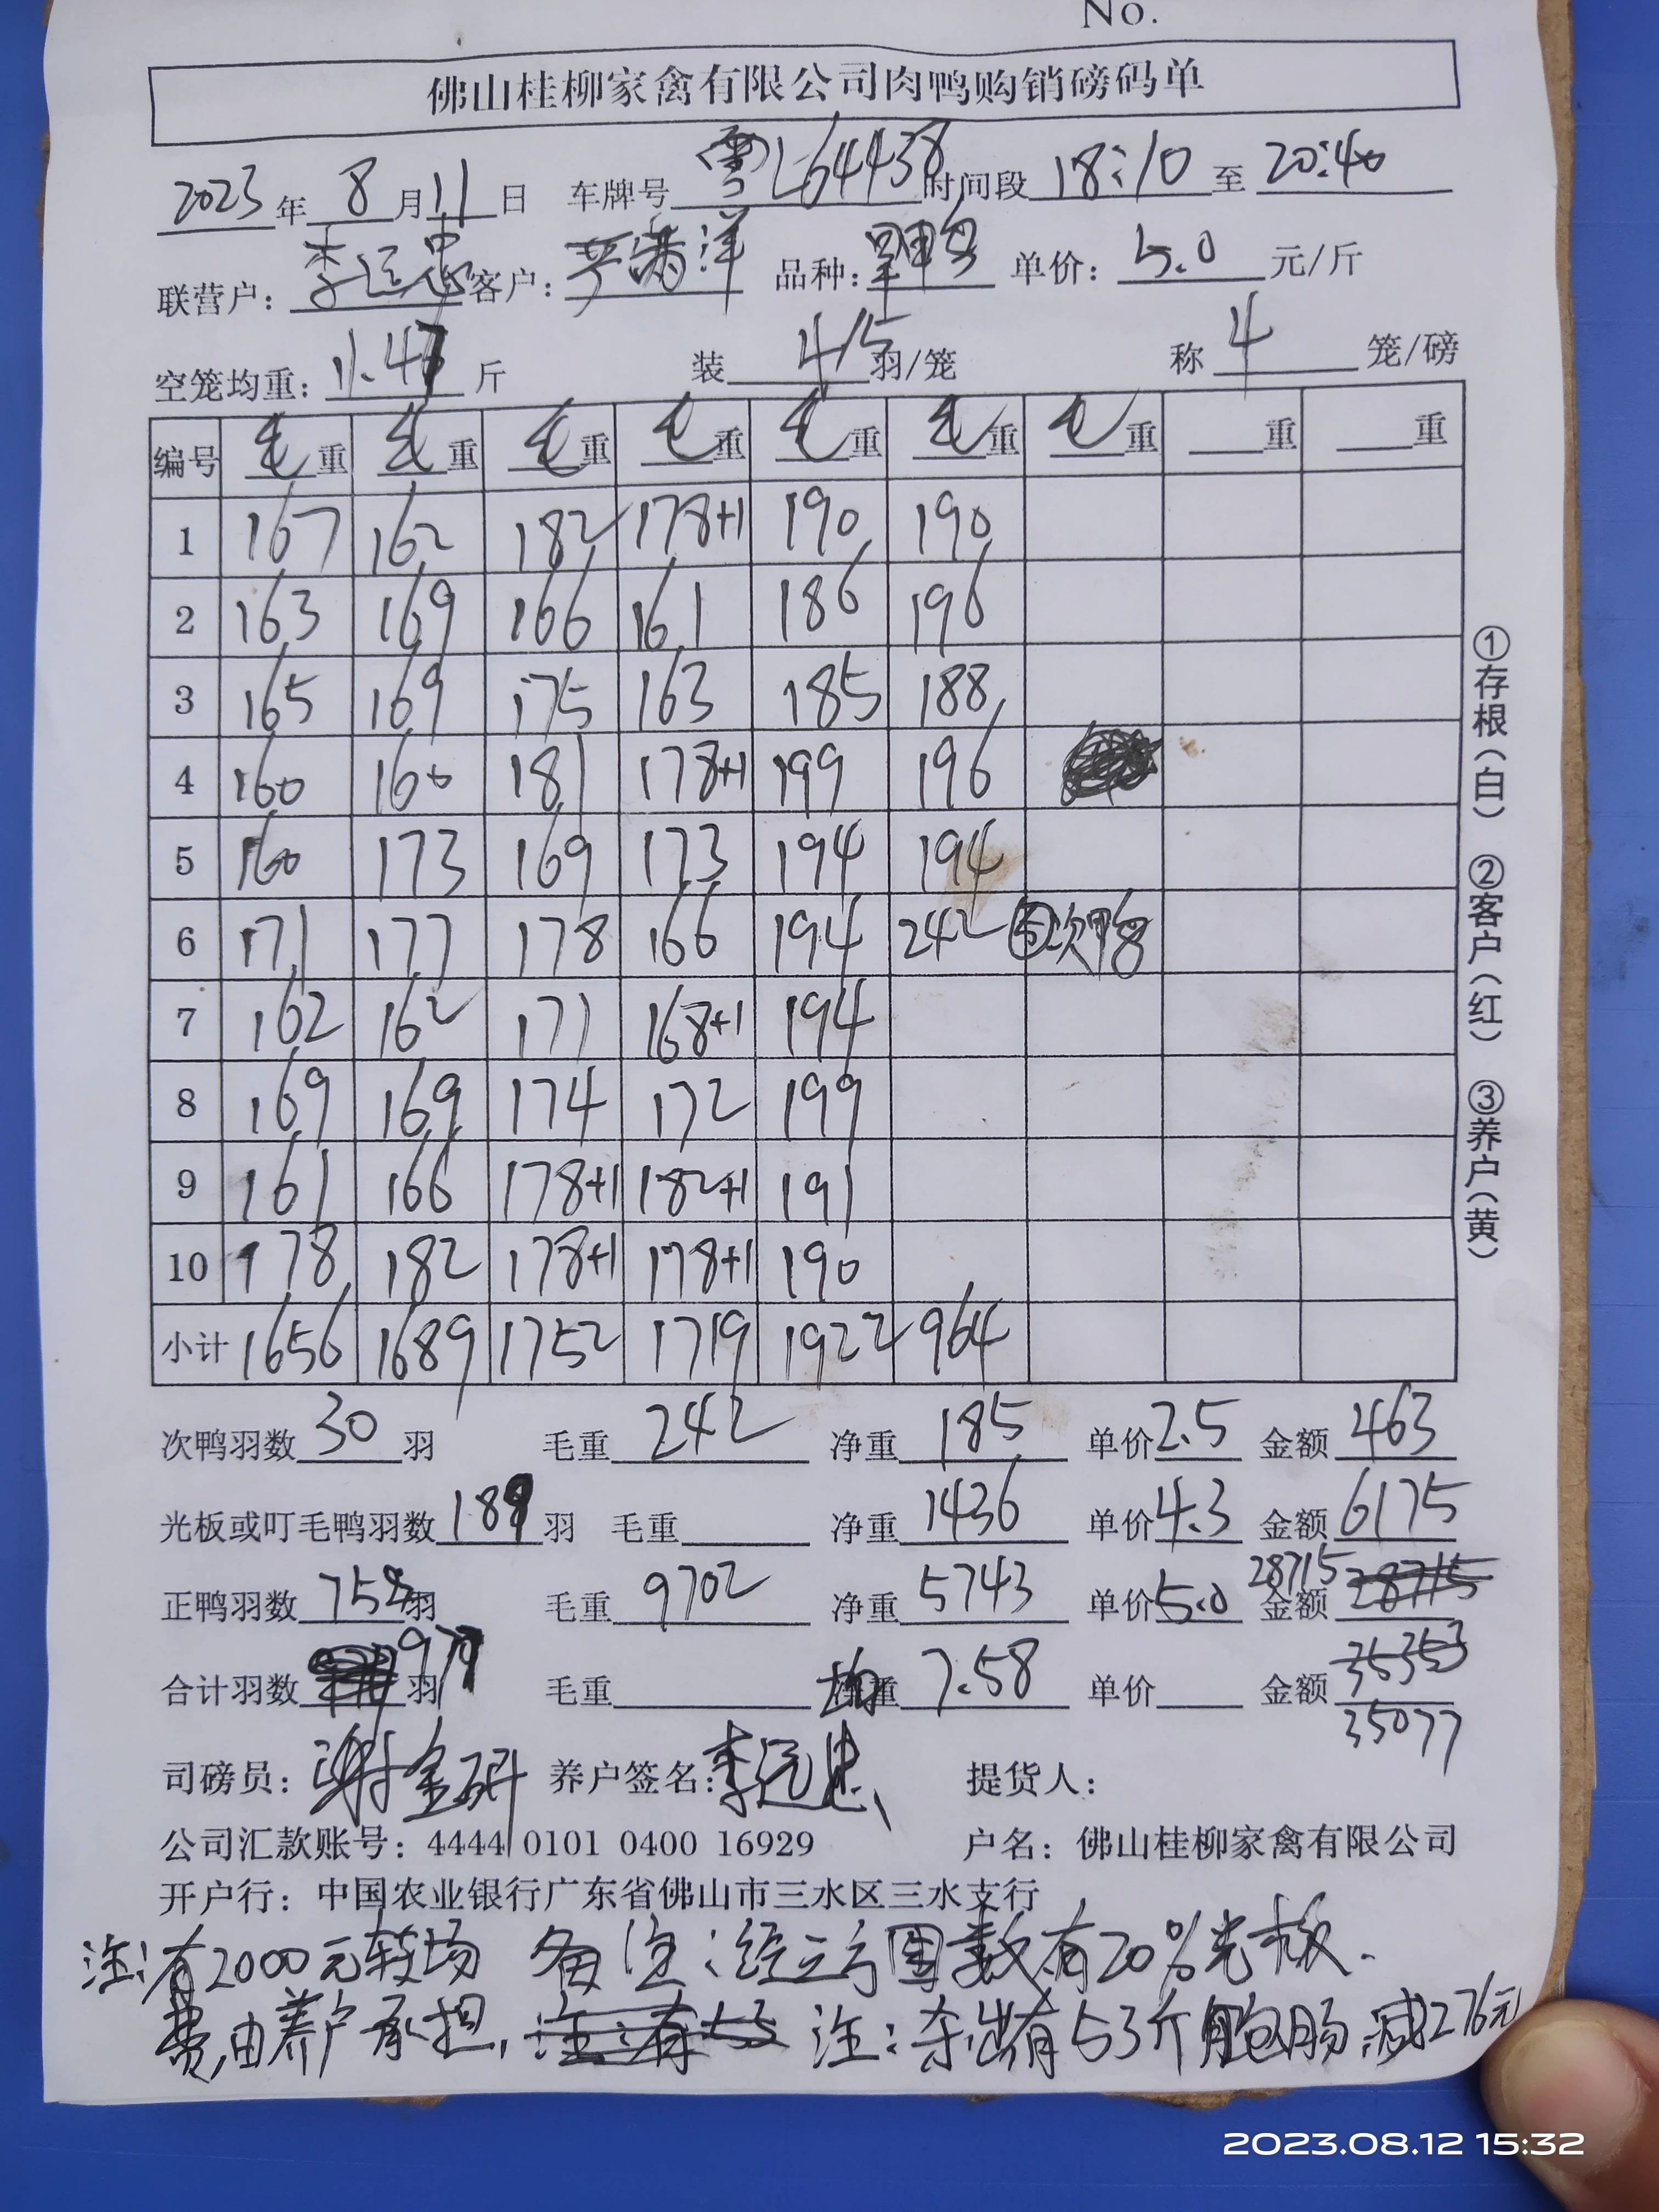 No.
佛山桂柳家禽有限公司肉鸭购销磅码单
2023年 8 月 11 日 车牌号 粤L64438 时间段 18:10 至 20:40
联营户: 李运忠 客户: 洋 品种: 单价: 5.0 元/斤
空笼均重: 11.47 斤 装 4/5 羽/笼 称 4 笼/磅
编号 毛重 毛重 毛重 毛重 毛重 毛重 毛重 重 重
1 167 162 182 178+1 190 190
2 163 169 166 161 186 196
3 165 169 175 163 185 188
4 160 160 181 178+1 199 196
5 160 173 169 173 194 194
6 171 177 178 166 194 242 ⑤次鸭
7 162 162 171 168+1 194
8 169 169 174 172 199
9 161 166 178+1 182+1 191
10 178 182 178+1 178+1 190
小计 1656 1689 1752 1719 1922 964
次鸭羽数 30 羽 毛重 242 净重 185 单价 2.5 金额 463
光板或叮毛鸭羽数 189 羽 毛重 净重 1436 单价 4.3 金额 6175
正鸭羽数 758 羽 毛重 9702 净重 5743 单价 5.0 金额 28715 28715
合计羽数 977 羽 毛重 均重 7.58 单价 金额 35353
35077
司磅员: 谢金研 养户签名: 李运忠 提货人:
公司汇款账号: 4444 0101 0400 16929 户名: 佛山桂柳家禽有限公司
开户行: 中国农业银行广东省佛山市三水区三水支行
注:有2000元转场 备注:经三方围数有20%光板.
费,由养户承担, 注:有 注:杀出有53斤胞肠,减276元
①存根(白) ②客户(红) ③养户(黄)
2023.08.12 15:32